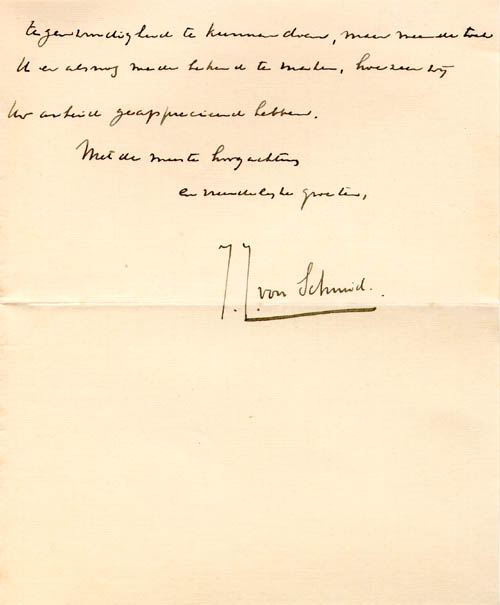 tegenwoordigheid te kunnen doen, maar meende toch
U er alsnog mede bekend te maken, hoezeer wij
Uw arbeid geapprecieerd hebben.
Met de meeste hoogachting
en vriendelijke groeten,
J. J. von Schmid.